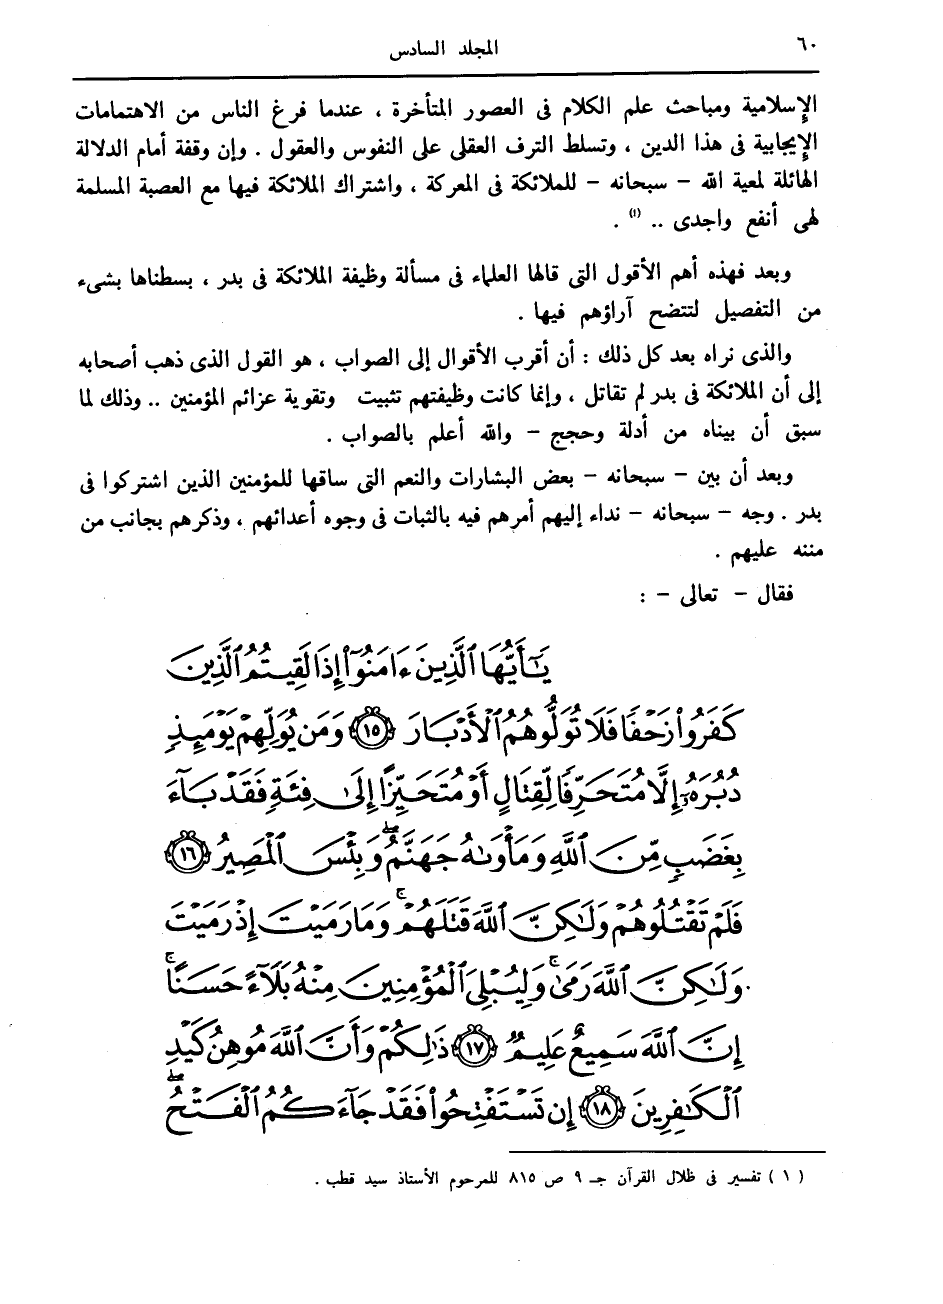 ٦٠ المجلد السادس
الإسلامية ومباحث علم الكلام فى العصور المتأخرة ، عندما فرغ الناس من الاهتمامات
الإيجابية فى هذا الدين ، وتسلط الترف العقلى على النفوس والعقول . وإن وقفة أمام الدلالة
الهائلة لمعية الله – سبحانه – للملائكة فى المعركة ، واشتراك الملائكة فيها مع العصبة المسلمة
لهى أنفع واجدى .. (١) .
وبعد فهذه أهم الأقول التى قالها العلماء فى مسألة وظيفة الملائكة فى بدر ، بسطناها بشىء
من التفصيل لتتضح آراؤهم فيها .
والذى نراه بعد كل ذلك : أن أقرب الأقوال إلى الصواب ، هو القول الذى ذهب أصحابه
إلى أن الملائكة فى بدر لم تقاتل ، وإنما كانت وظيفتهم تثبيت وتقوية عزائم المؤمنين .. وذلك لما
سبق أن بيناه من أدلة وحجج – والله أعلم بالصواب .
وبعد أن بين – سبحانه – بعض البشارات والنعم التى ساقها للمؤمنين الذين اشتركوا فى
بدر . وجه – سبحانه – نداء إليهم أمرهم فيه بالثبات فى وجوه أعدائهم ، وذكرهم بجانب من
مننه عليهم .
فقال – تعالى – :
يَٰٓأَيُّهَا ٱلَّذِينَ ءَامَنُوٓا۟ إِذَا لَقِيتُمُ ٱلَّذِينَ
كَفَرُوا۟ زَحْفًا فَلَا تُوَلُّوهُمُ ٱلْأَدْبَارَ ١٥ وَمَن يُوَلِّهِمْ يَوْمَئِذٍ
دُبُرَهُۥٓ إِلَّا مُتَحَرِّفًا لِّقِتَالٍ أَوْ مُتَحَيِّزًا إِلَىٰ فِئَةٍ فَقَدْ بَآءَ
بِغَضَبٍ مِّنَ ٱللَّهِ وَمَأْوَىٰهُ جَهَنَّمُ ۖ وَبِئْسَ ٱلْمَصِيرُ ١٦
فَلَمْ تَقْتُلُوهُمْ وَلَٰكِنَّ ٱللَّهَ قَتَلَهُمْ ۚ وَمَا رَمَيْتَ إِذْ رَمَيْتَ
وَلَٰكِنَّ ٱللَّهَ رَمَىٰ ۚ وَلِيُبْلِىَ ٱلْمُؤْمِنِينَ مِنْهُ بَلَآءً حَسَنًا ۚ
إِنَّ ٱللَّهَ سَمِيعٌ عَلِيمٌ ١٧ ذَٰلِكُمْ وَأَنَّ ٱللَّهَ مُوهِنُ كَيْدِ
ٱلْكَٰفِرِينَ ١٨ إِن تَسْتَفْتِحُوا۟ فَقَدْ جَآءَكُمُ ٱلْفَتْحُ ۖ
( ١ ) تفسير فى ظلال القرآن جـ ٩ ص ٨١٥ للمرحوم الأستاذ سيد قطب .